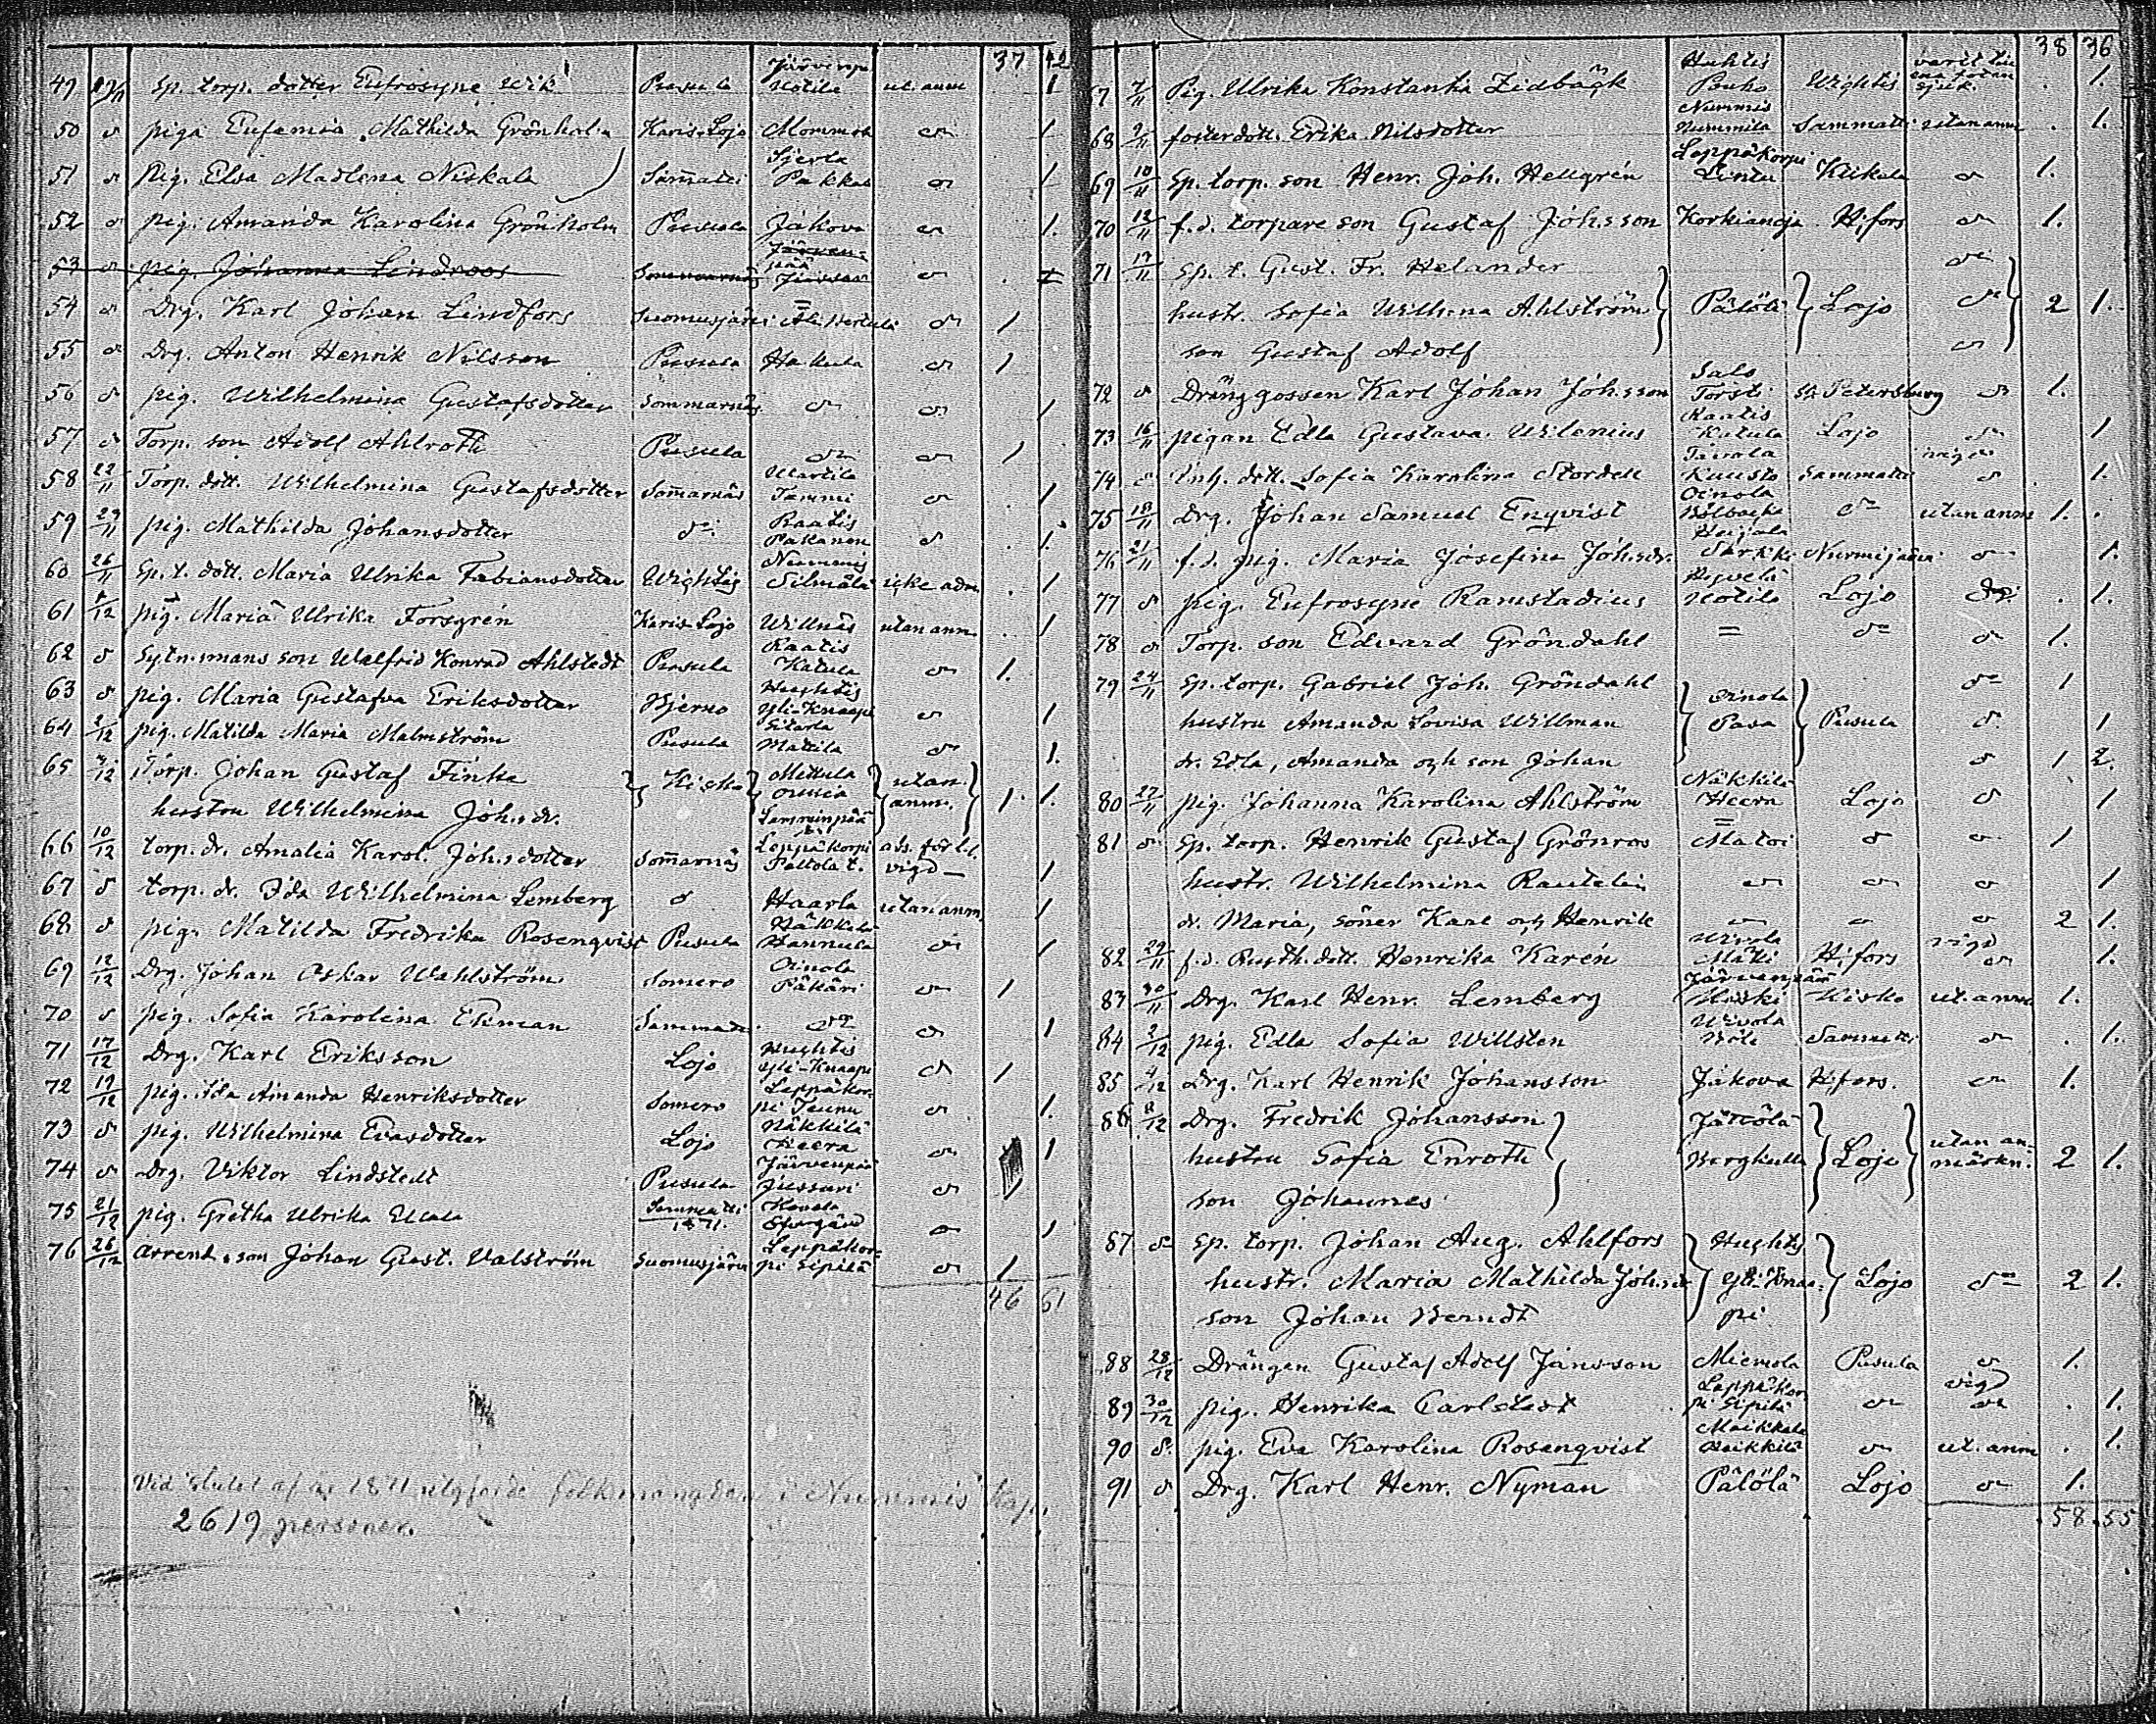 37 42
49 19/11 Sp. torp. dotter Eufrosyne Wik Pusula Järvenp. Uotila ut. anm 1
50 d piga Eufemia Mathilda Grönholm Karis-Lojo Mommola d 1.
51 d Pig. Elsa Madlena Niskala Sammatti Sjerla Pakkas d 1
52 d pig. Amanda Karolina Grönholm Pusula Jakova d 1.
53 d pig. Johanna Lindroos Sommarnäs Järvenpää Jussari d 1
54 d Drg. Karl Johan Lindfors Suomusjärvi = Ali-Herttula d 1
55 d Drg. Anton Henrik Nilsson Pusula Hakula d 1
56 d pig. Wilhelmina Gustafsdotter Sommarnäs d d 1
57 d Torp. son Adolf Ahlroth Pusula d d 1
58 22/11 Torp. dott. Wilhelmina Gustafsdotter Somarnäs Martila Tammi d 1
59 24/11 pig. Mathilda Johansdotter d Raatis Pakanen d 1.
60 26/11 Sp. t. dott. Maria Ulrika Fabiansdotter Wichtis Nummis Silmälä icke adm. 1
61 /12 pig. Maria Ulrika Forsgrén Karis Lojo Willnäs utan anm. 1
62 d Sytn.mans son Walfrid Konrad Ahlstedt Pusula Raatis Katula d 1.
63 d pig. Maria Gustafva Eriksdotter Bjerno Huhtis Yli-Knaapi d 1
64 2/12 pig. Matilda Maria Malmström Pusula Sitarla Mattila d 1.
65 /12 Torp. Johan Gustaf Finka } Kisko { Mettula Outia } utan
hustru Wilhelmina Joh.sdr. anm. 1. 1.
66 10/12 torp. dr. Amalia Karol. Joh.sdotter Somarnäs Leppäkorpi Paltola t. att. för lt. vigd 1
67 d torp. dr. Ida Wilhelmina Lemberg d Haarla utan anm. 1
68 d pig. Matilda Fredrika Rosenqvist Pusula Näkkilä Hannula d 1
69 12/12 Drg. Johan Oskar Wahlström Somero Oinola Päkäri d 1
70 d pig. Sofia Karolina Ekman Sammatti d d 1
71 17/12 Drg. Karl Eriksson Lojo Huhtis Yli-Knaapi d 1
72 19/12 pig. Ida Amanda Henriksdotter Somero Leppäkorpi Teunu d 1.
73 d pig. Wilhelmina Evasdotter Lojo Näkkilä Heera d 1
74 d Drg. Viktor Lindstedt Pusula Järvenpää Jussari d 1
75 21/12 pig. Gretha Ulrika Ulala Sammatti 1871. Kovela Storgård d 1
76 26/12 Arrend. son Johan Gust. Valström Suomusjärvi Leppäkorpi Sipilä d 1
46 61
Vid slutet af år 1871 utgjorde folkmängden i Nummis kap.
2619 personer.
38 36
7 7/11 Pig. Ulrika Konstantia Lidbäck Huhtis Pouho Wichtis sjuk. 1.
68 9/11 fosterdott. Erika Nilsdotter Nummis Nummila Sammatti utan anm 1.
69 10/11 Sp. torp. son Henr. Joh. Hellgrén Leppäkorpi Lintu Kiikala d 1.
70 12/11 f.d. torpare son Gustaf Joh.sson Korkianoja H:fors d 1.
71 /11 Sp. t. Gust. Fr. Helander d
hustr. Sofia Wilh:na Ahlström } Pälölä } Lojo d } 2 1.
son Gustaf Adolf d
72 d Dränggossen Karl Johan Joh.sson Salo Torsti St Petersburg d 1.
73 16/11 pigan Edla Gustava Wilenius Raatis Katula Lojo d 1
74 d Inh. dott. Sofia Karolina Stordell Tavola Kuusto Sammatti vigd d 1.
75 18/11 Drg. Johan Samuel Enqvist Oinola Bölbacka d utan anm 1.
76 21/11 f.d. pig. Maria Josefina Joh.sdr. Heijala Särkikä Nurmijärvi d 1.
77 d pig. Eufrosyne Ramstadius Hyvelä Uotila Lojo d 1.
78 d Torp. son Edvard Gröndahl = d d 1.
79 24/11 Sp. torp. Gabriel Joh. Gröndahl d 1
hustru Amanda Lovisa Willman } Oinola Pasa } Pusula d 1
dr. Edla, Amanda och son Johan d 1 2.
80 27/11 pig. Johanna Karolina Ahlström Näkkilä Heera Lojo d 1
81 d Sp. torp. Henrik Gustaf Grönroos = Matoi d d 1
hustr. Wilhelmina Rautelin d d d 1
dr. Maria, söner Karl och Henrik d d d 2 1.
82 29/11 f.d. Rusth. dott. Henrika Karén Uivola Matti H:fors vigd d 1.
83 30/11 Drg. Karl Henr. Lemberg Järvenpää Koski Kisko ut. anm 1.
84 2/12 pig. Edla Sofia Willstén Uivola Böli Sammatti d 1.
85 4/12 Drg. Karl Henrik Johansson Jakova H:fors. d 1.
86 8/12 Drg. Fredrik Johansson Jättölä
hustru Sofia Enroth } Berghulla } Lojo } utan anmärkn. 2 1.
son Johannes
87 d Sp. torp. Johan Aug. Ahlfors Huhtis
hustr. Maria Mathilda Joh.sdr } Yli-Knaa- } Lojo d 2 1.
son Johan Berndt pi
88 28/12 Drängen Gustaf Adolf Jansson Miemola Pusula d 1.
89 30/12 pig. Henrika Carlstedt Leppäkorpi Sipilä d vigd d 1.
90 d pig. Eva Karolina Rosenqvist Maikkala Heikkilä d ut. anm 1.
91 d Drg. Karl Henr. Nyman Pälölä Lojo d 1.
58. 55